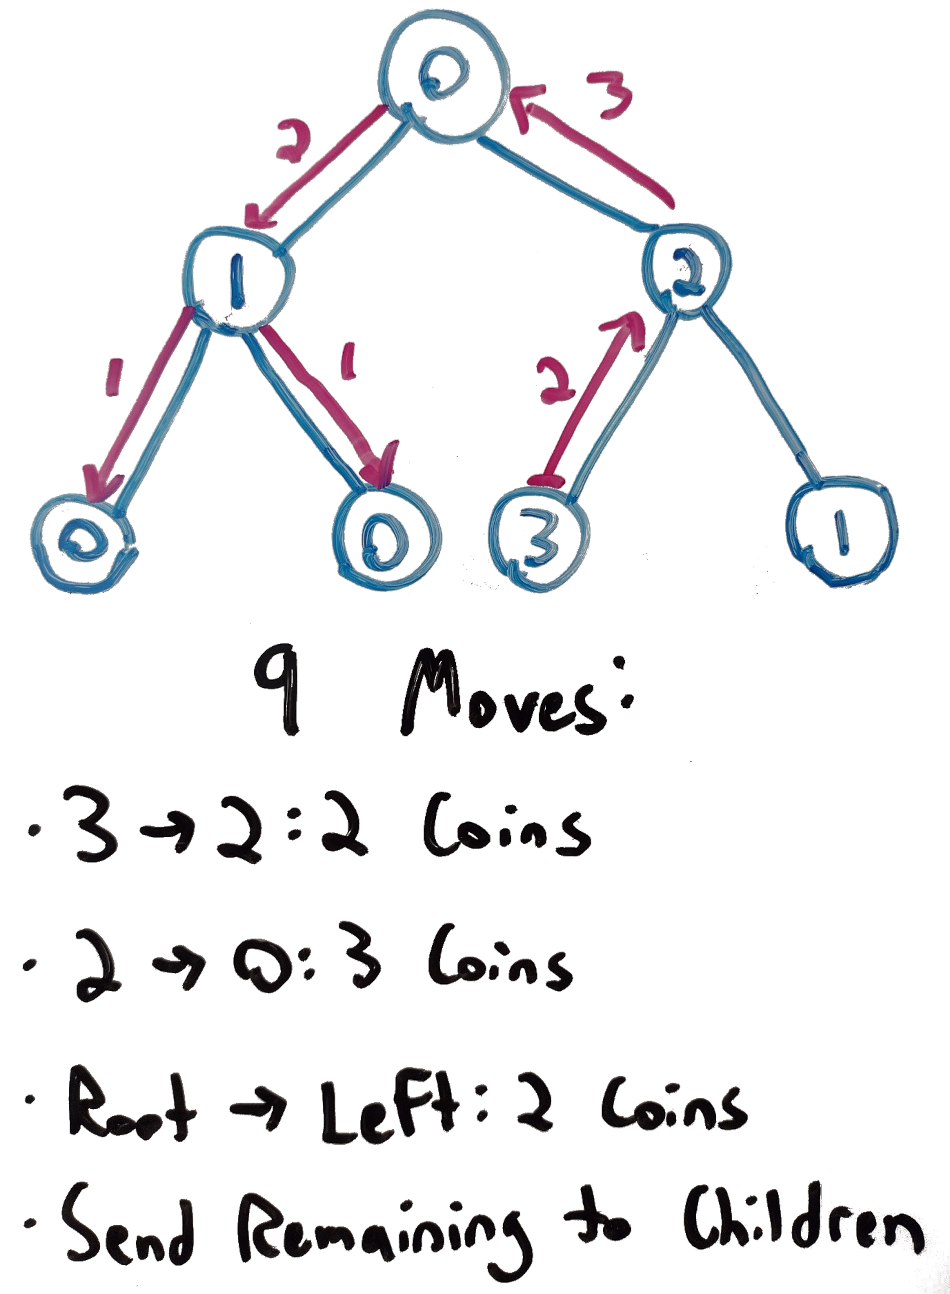 0
2 3
1 2
1 1 2
0 0 3 1
9 Moves:
· 3 → 2 : 2 Coins
· 2 → 0 : 3 Coins
· Root → Left : 2 Coins
· Send Remaining to Children